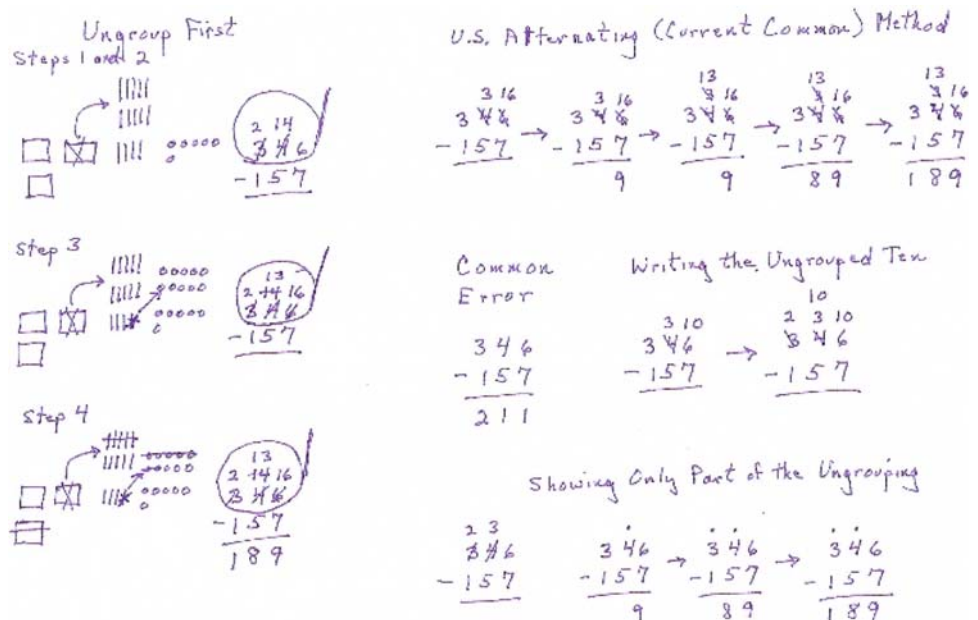 Ungroup First
Steps 1 and 2
2 14
3 4 6
- 1 5 7
Step 3
13
2 14 16
3 4 6
- 1 5 7
Step 4
13
2 14 16
3 4 6
- 1 5 7
1 8 9
U.S. Alternating (Current Common) Method
3 16
3 4 6
- 1 5 7
3 16
3 4 6
- 1 5 7
9
13
3 16
3 4 6
- 1 5 7
9
13
3 16
3 4 6
- 1 5 7
8 9
13
3 16
3 4 6
- 1 5 7
1 8 9
Common
Error
3 4 6
- 1 5 7
2 1 1
Writing the Ungrouped Ten
3 10
3 4 6
- 1 5 7
10
2 3 10
3 4 6
- 1 5 7
Showing Only Part of the Ungrouping
2 3
3 4 6
- 1 5 7
3 4 6
- 1 5 7
9
3 4 6
- 1 5 7
8 9
3 4 6
- 1 5 7
1 8 9